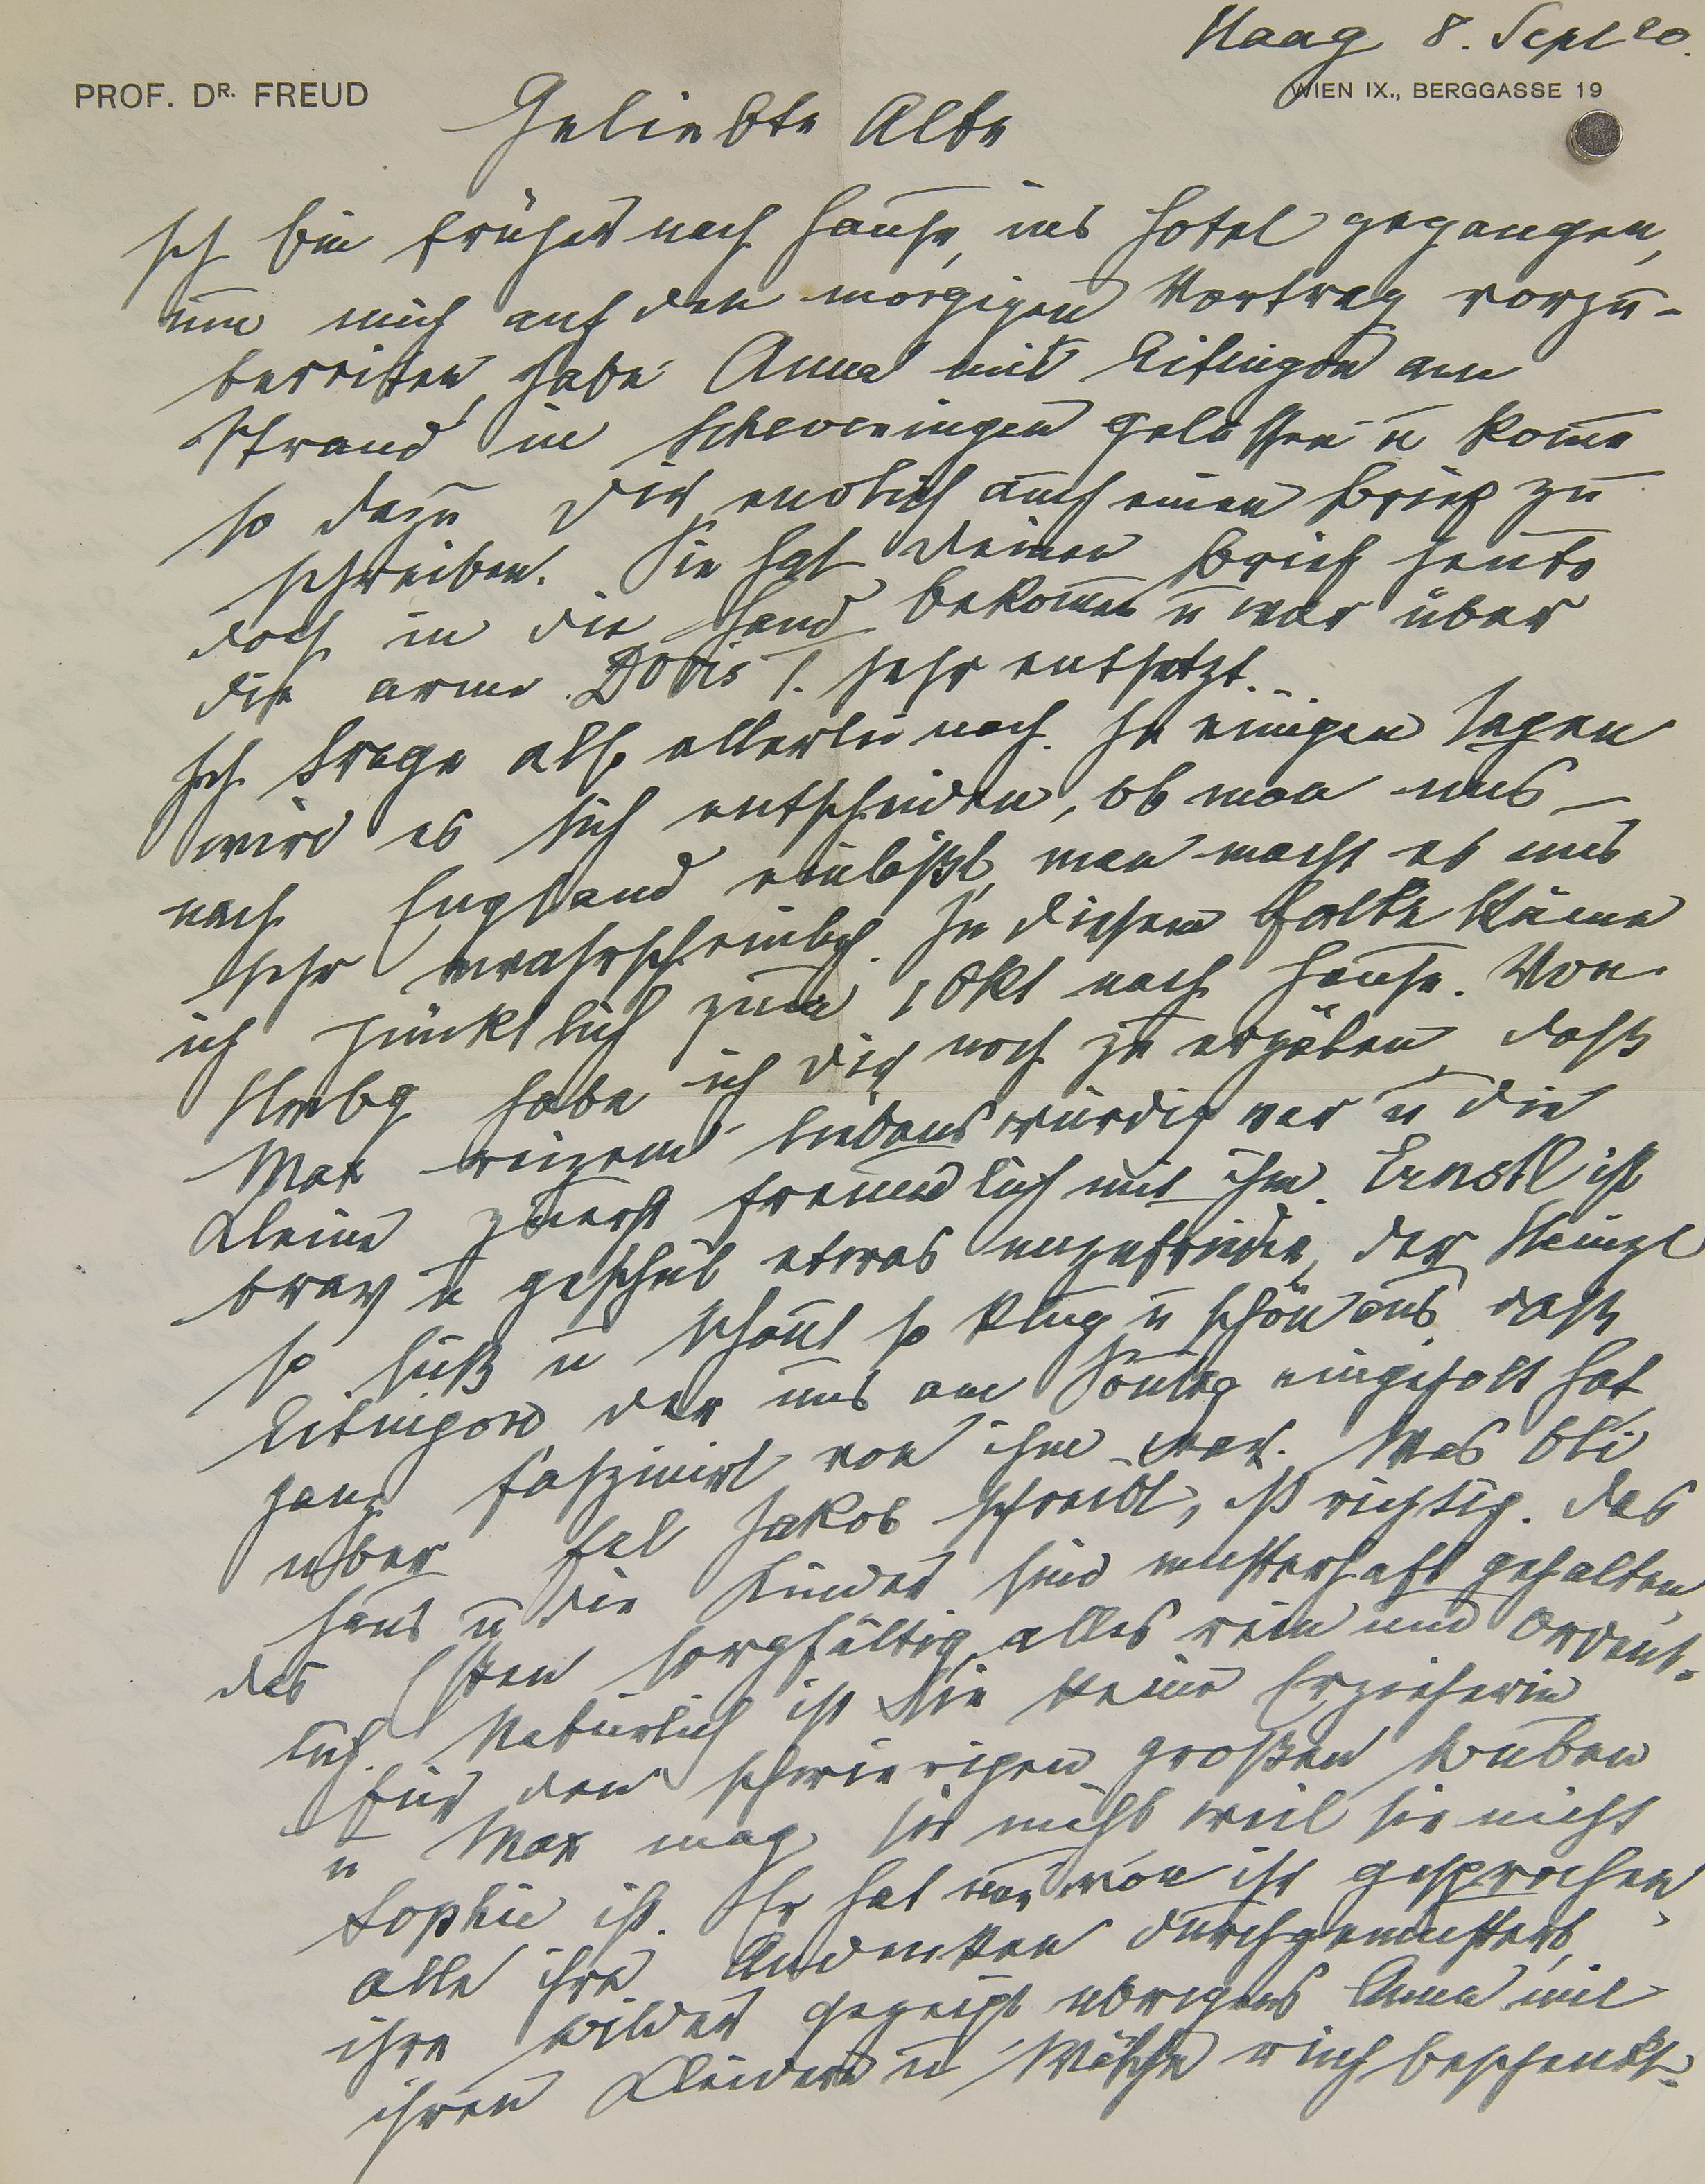 Haag 8. Sept 20.
PROF. DR. FREUD
WIEN IX., BERGGASSE 19
Geliebte Alte
Ich bin früher nach Hause, ins Hotel gegangen,
um mich auf den morgigen Vortrag vorzu-
bereiten, habe Anna mit Eitingon am
Strand in Scheveningen gelassen u komme
so dazu Dir endlich auch einen Brief zu
schreiben. Sie hat Deinen Brief heute
doch in die Hand bekommen u war über
die arme Doris sehr entsetzt.
Ich trage also allerlei nach. In einigen Tagen
wird es sich entscheiden, ob man uns
nach England einläßt, man macht es uns
sehr wahrscheinlich. In diesem Falle käme
ich pünktlich zum 1 Okt nach Hause. Von
Hmbg habe ich Dir noch zu erzälen, daß
Max reizend liebenswürdig war u die
Kleine zuerst freundlich mit ihm. Ernstl ist
brav u geschult etwas unzufrieden, der Heinzl
so süß u schaut so klug u schön aus, daß
Eitingon der uns am Sonntag eingeholt hat,
ganz fasziniert von ihm war. Was Oli
über Frl Jakob schreibt, ist richtig. Das
Haus u die Kinder sind musterhaft gehalten,
das Essen sorgfältig, alles rein und ordent-
lich. Natürlich ist sie keine Erzieherin
für den schwierigen großen Buben
u Max mag sie nicht weil sie nicht
Sophie ist. Er hat nur von ihr gesprochen,
alle ihre Andenken durchgemustert,
ihre Bilder gezeigt übrigens Anna mit
ihren Kleidern u Wäsche reich beschenkt.